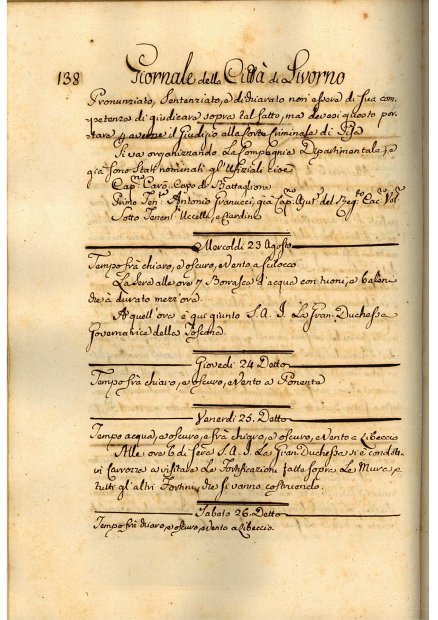 138 Giornale della Città di Livorno
Pronunziato, Sentenziato, e dichiarato non essere di sua com=
petenza di giudicare sopra tal fatto, ma devesi questo por=
tare il Giudizio alla Corte Criminale di Pisa
Si và organizzando La Compagnia Dipartimentale, e
già sono stati nominati gl' Ufiziali cioè
Cap.no Capo di Battaglione
Primo Ten.te Antonio Franucci, già Cap.no del Reg.to Cac. Vol.
Sotto Tenen.ti Uccelli, e Ciardini
Mercoldì 23 Agosto
Tempo frà chiaro, e oscuro, e vento a Scilocco
La Sera alle ore 7 Borrasca d'acqua con tuoni, e baleni
che à durato mezz'ora.
A quell'ora è qui giunto S. A. I. La Gran-Duchessa
Governatrice della Toscana.
Giovedì 24 Detto
Tempo frà chiaro, e oscuro, e vento a Ponente
Venerdì 25. Detto
Tempo acqua, e oscuro, e frà chiaro, e oscuro, e vento a Libeccio
Alle ore 6 di sera S. A. I. La Gran Duchessa si è condotta
in Carrozza a visitare Le Fortificazioni fatte sopra Le Mura, e
tutti gl' altri Fortini, che si vanno costruendo.
Sabato 26. Detto
Tempo frà chiaro, e oscuro, e vento a Libeccio.